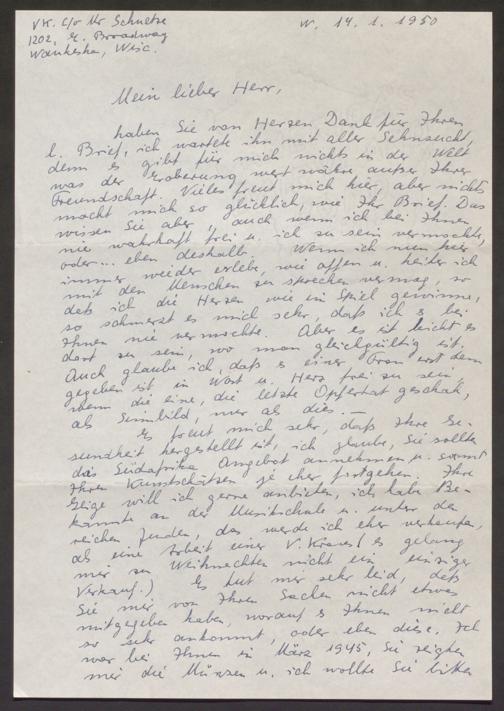 VK. c/o Mr Schultze
1202, E. Broadway
Waukesha, Wisc.
W. 14. 1. 1950
Mein lieber Herr,
haben Sie von Herzen Dank für Ihren
l. Brief, ich wartete ihn mit aller Sehnsucht,
denn es gibt für mich nichts in der Welt
was der Eroberung wert wäre außer Ihrer
Freundschaft. Vieles freut mich hier, aber nichts
macht mich so glücklich, wie Ihr Brief. Das
wissen Sie aber, auch wenn ich bei Ihnen
nie wahrhaft frei u. ich zu sein vermochte,
oder... eben deshalb. Wenn ich nun hier
immer wieder erlebe, wie offen u. heiter ich
mit den Menschen zu sprechen vermag, so
daß ich die Herzen wie im Spiel gewinne,
so schmerzt es mich sehr, daß ich es bei
Ihnen nie vermochte. Aber es ist leicht es
dort zu sein, wo man gleichgültig ist.
Auch glaube ich, daß es einer Frau erst dann
gegeben ist in Wort u. Herz frei zu sein,
wenn die eine, die letzte Opfertat geschah,
als Sinnbild, mer als dies. —
Es freut mich sehr, daß Ihre Ge-
sundheit hergestellt ist, ich glaube, Sie sollten
das Südafrika Angebot annehmen u. samt
Ihren Kunstschätzen je eher fortgehen. Ihre
Geige will ich gerne anbieten, ich habe Be-
kannte an der Musikschule u. unter den
reichen Juden, das werde ich eher verkaufen,
als eine Arbeit einer V. Kraus( es gelang
mir zu Weihnachten nicht ein einziger
Verkauf.) Es tut mir sehr leid, daß
Sie mir von Ihren Sachen nicht etwas
mitgegeben haben, worauf es Ihnen nicht
so sehr ankommt, oder eben diese. Ich
war bei Ihnen in März 1945, Sie zeigten
mir die Münzen u. ich wollte Sie bitten